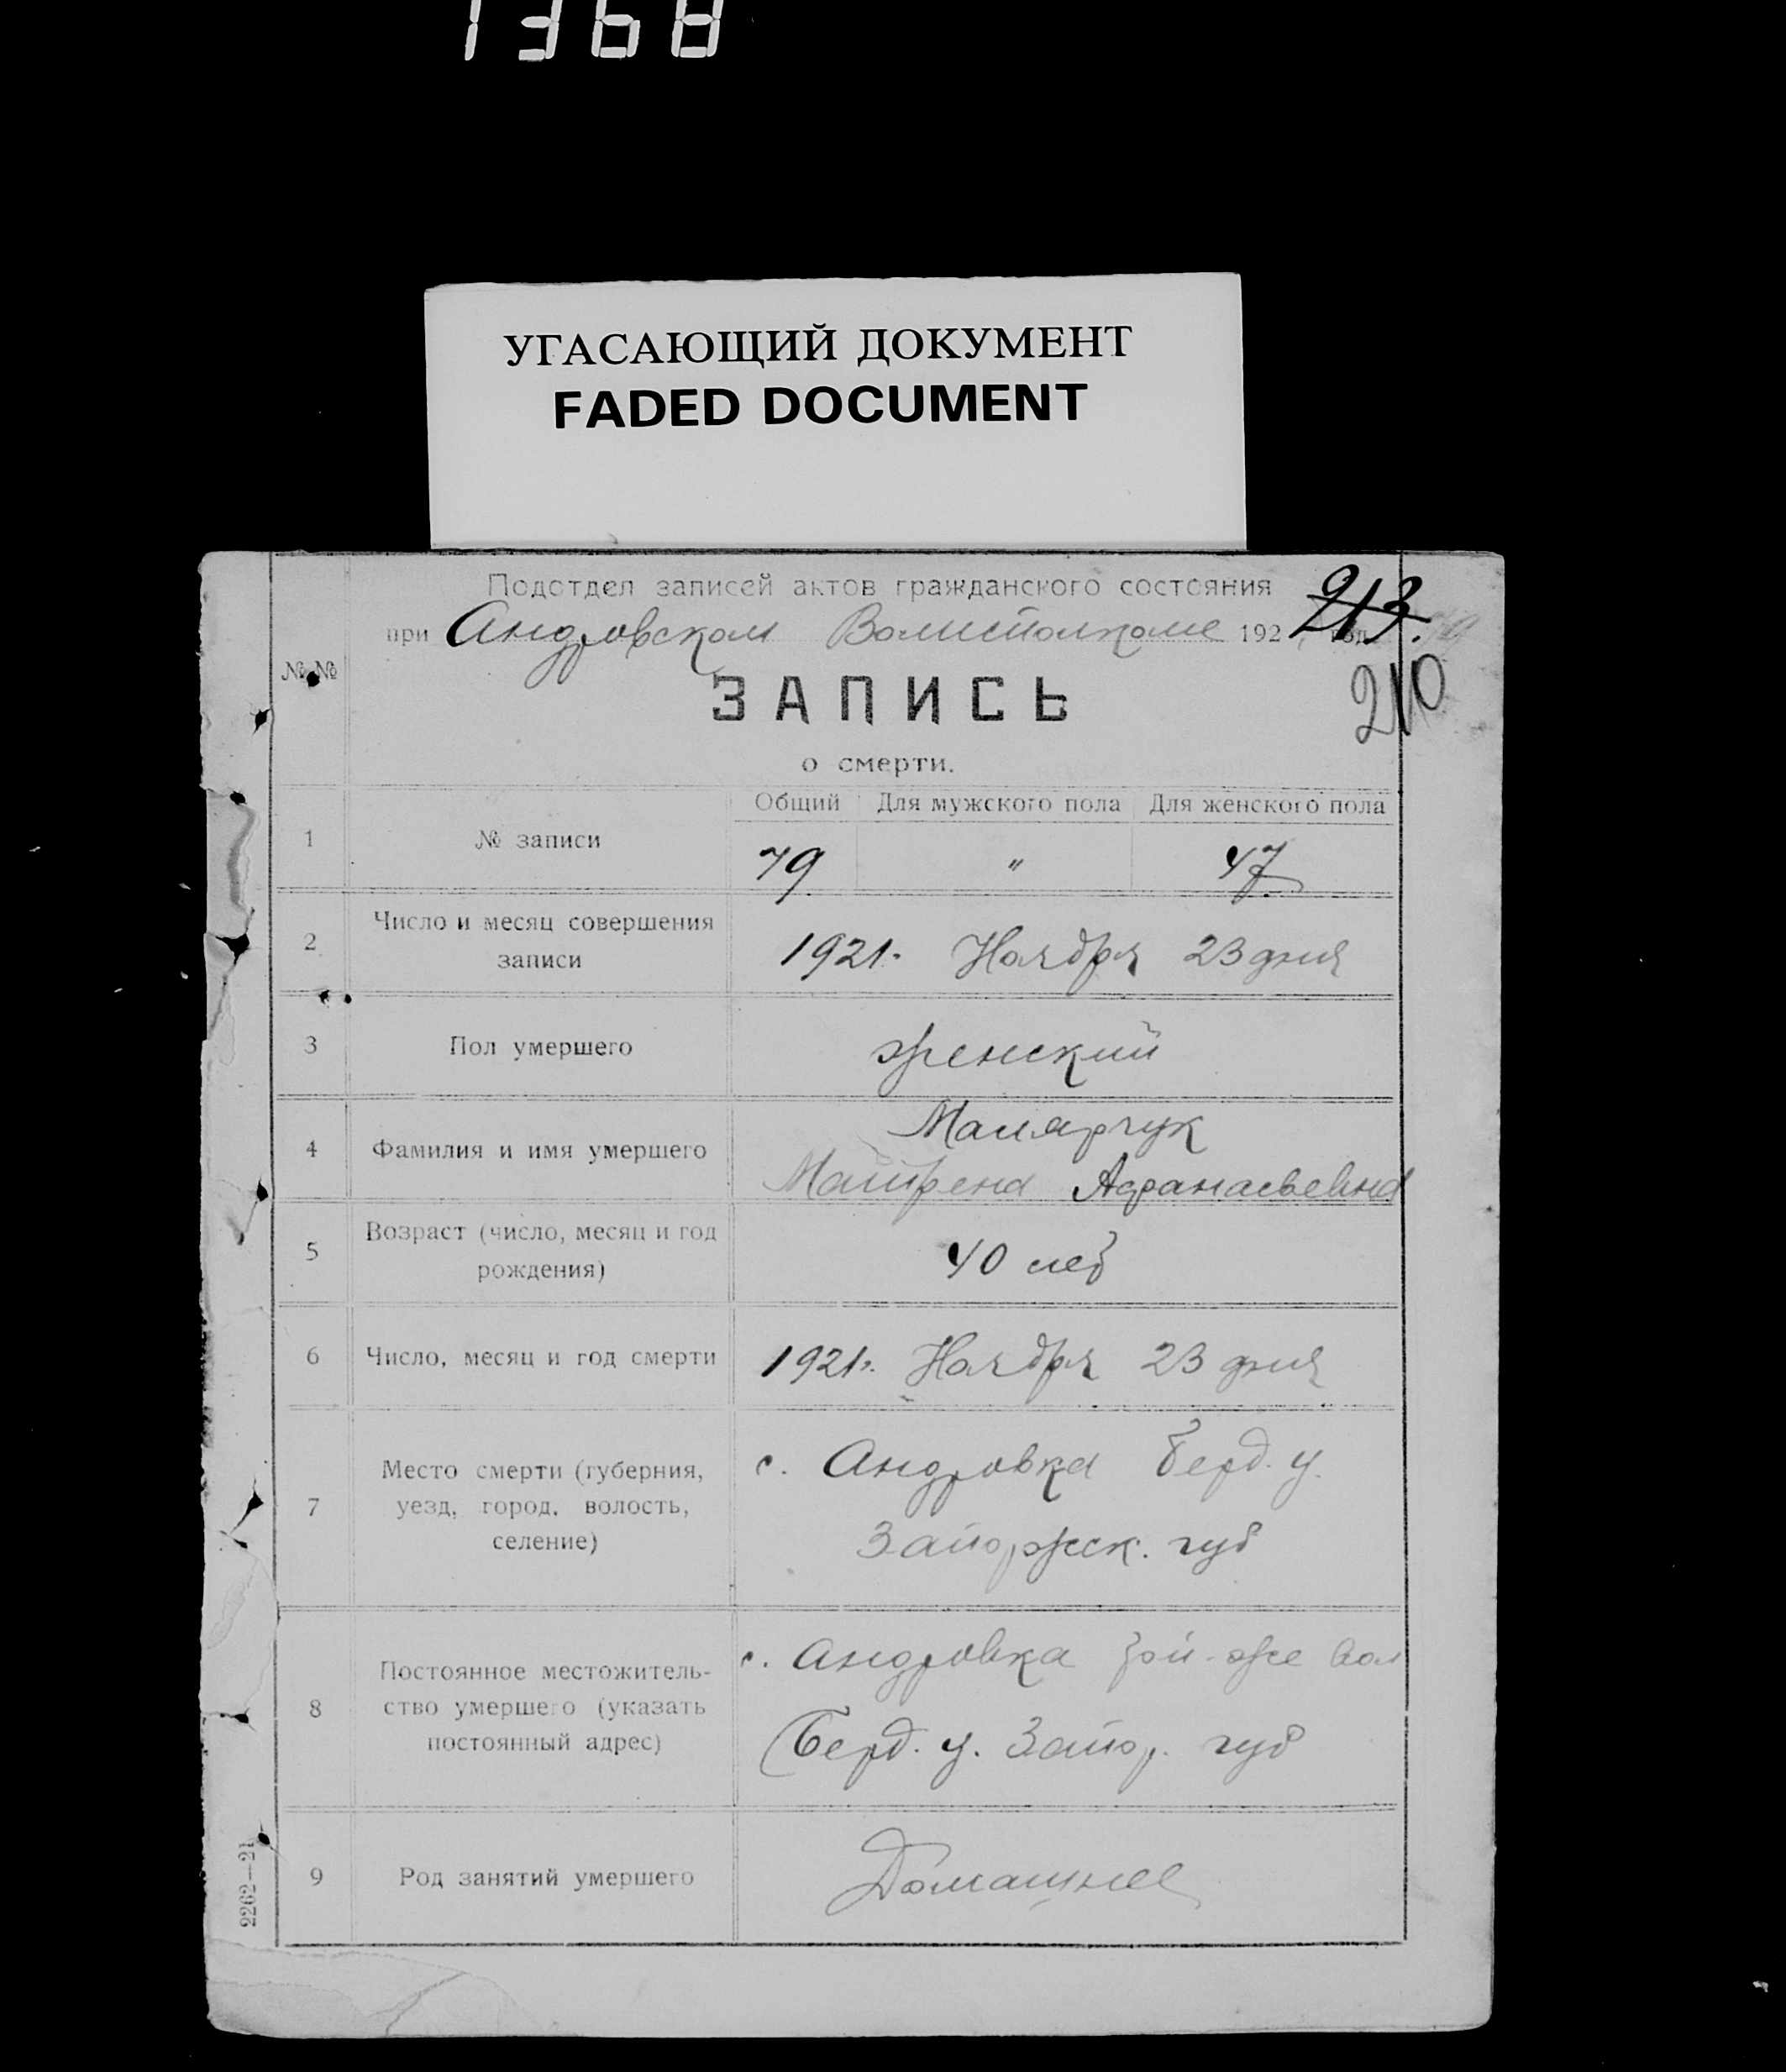 1368
УГАСАЮЩИЙ ДОКУМЕНТ
FADED DOCUMENT
Подотдел записей актов гражданского состояния
213.
при Андровском Волисполкоме 192 год
210
№ №
ЗАПИСЬ
о смерти.
Общий Для мужского пола Для женского пола
1 № записи
79 " 47
2 Число и месяц совершения
записи
1921. Ноября 23 дня
3 Пол умершего женский
4 Фамилия и имя умершего
Малярчук
Матрена Афанасьевна
5 Возраст (число, месяц и год
рождения)
40 лет
6 Число, месяц и год смерти 1921г. Ноября 23 дня
7 Место смерти (губерния,
уезд, город, волость,
селение)
с. Андровка Берд. у.
Запорожск. губ
8 Постоянное местожитель-
ство умершего (указать
постоянный адрес)
с. Андровка той-же вол
Берд. у. Запор. губ
9 Род занятий умершего Домашнее
2262—21